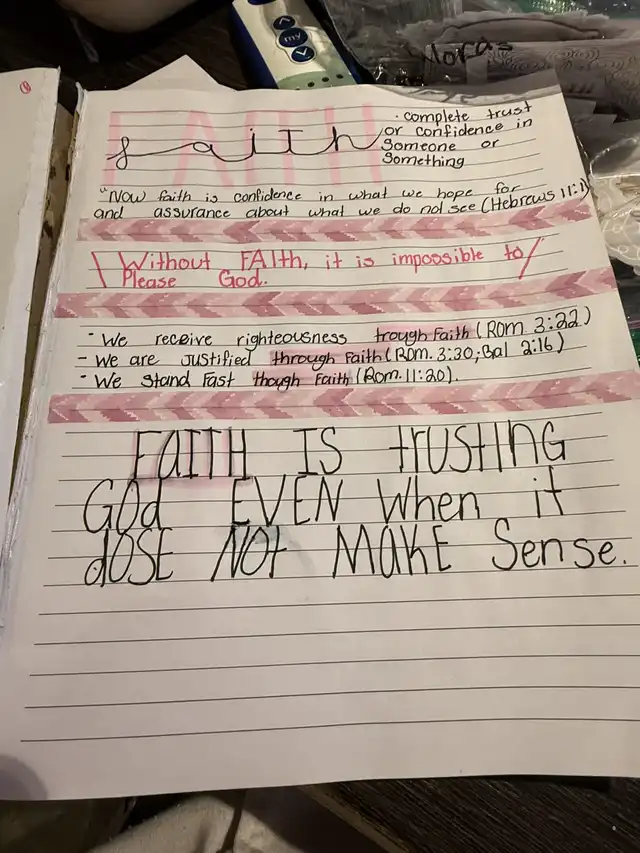 my
Noras
FAITH
faith
· complete trust
or confidence in
Someone or
Something
"Now faith is confidence in what we hope for
and assurance about what we do not see (Hebrews 11:1)
\ Without FAIth, it is impossible to /
Please God.
- We receive righteousness trough Faith (Rom 3:22)
- We are Justified through Faith (Rom. 3:30; Gal 2:16)
- We Stand Fast though Faith (Rom. 11:20).
FaITH IS trustIng
GOd EVEN When it
dOSE NOt MAKE Sense.